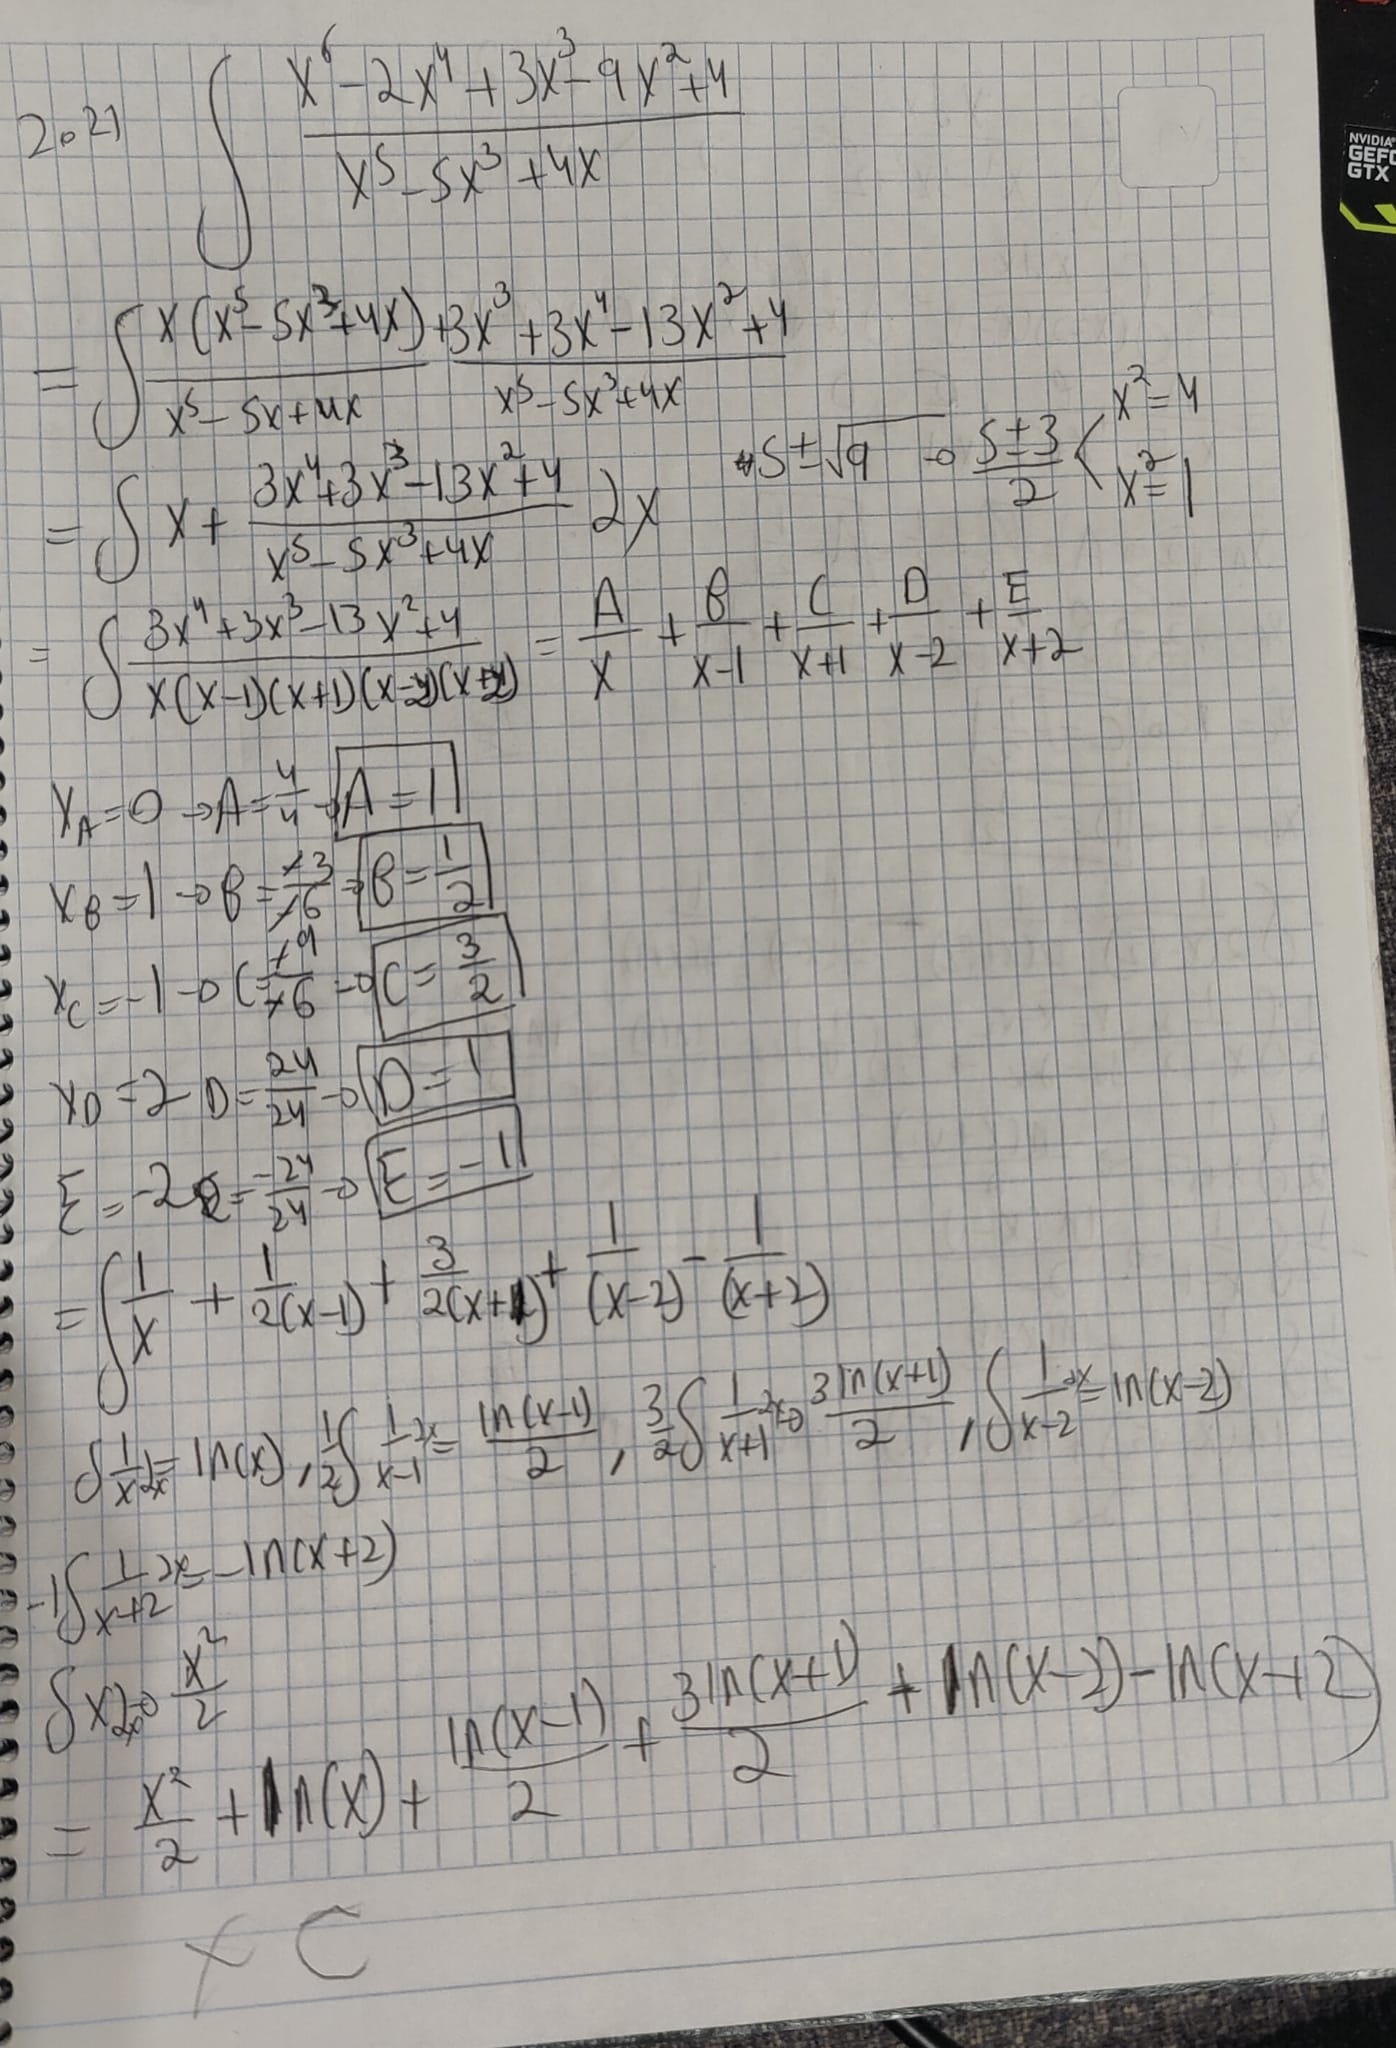 2021 ∫ (x⁶-2x⁴+3x³-9x²+4)/(x⁵-5x³+4x)
= ∫ x(x⁵-5x³+4x)/(x⁵-5x+4x) + (3x³+3x⁴-13x²+4)/(x⁵-5x³+4x)
= ∫ x + (3x⁴+3x³-13x²+4)/(x⁵-5x³+4x) 2x
5±√9 → (5±3)/2 < x²=4
x²=1
= ∫ (3x⁴+3x³-13x²+4)/(x(x-1)(x+1)(x-2)(x+2)) = A/x + B/(x-1) + C/(x+1) + D/(x-2) + E/(x+2)
x_A=0 → A=4/4 → A=1
x_B=1 → B=-3/-6 → B=1/2
x_C=-1 → C=-9/-6 → C=3/2
x_D=2 D=24/24 → D=1
E=-2 E=-24/24 → E=-1
= ∫ 1/x + 1/(2(x-1)) + 3/(2(x+1)) + 1/(x-2) - 1/(x+2)
∫ 1/x 2x = ln(x), 1/2 ∫ 1/(x-1) 2x = ln(x-1)/2, 3/2 ∫ 1/(x+1) 2x → 3ln(x+1)/2, ∫ 1/(x-2) 2x = ln(x-2)
-1 ∫ 1/(x+2) 2x = -ln(x+2)
∫ x 2x → x²/2
= x²/2 + ln(x) + ln(x-1)/2 + 3ln(x+1)/2 + ln(x-2) - ln(x+2)
+ C
NVIDIA
GEFO
GTX